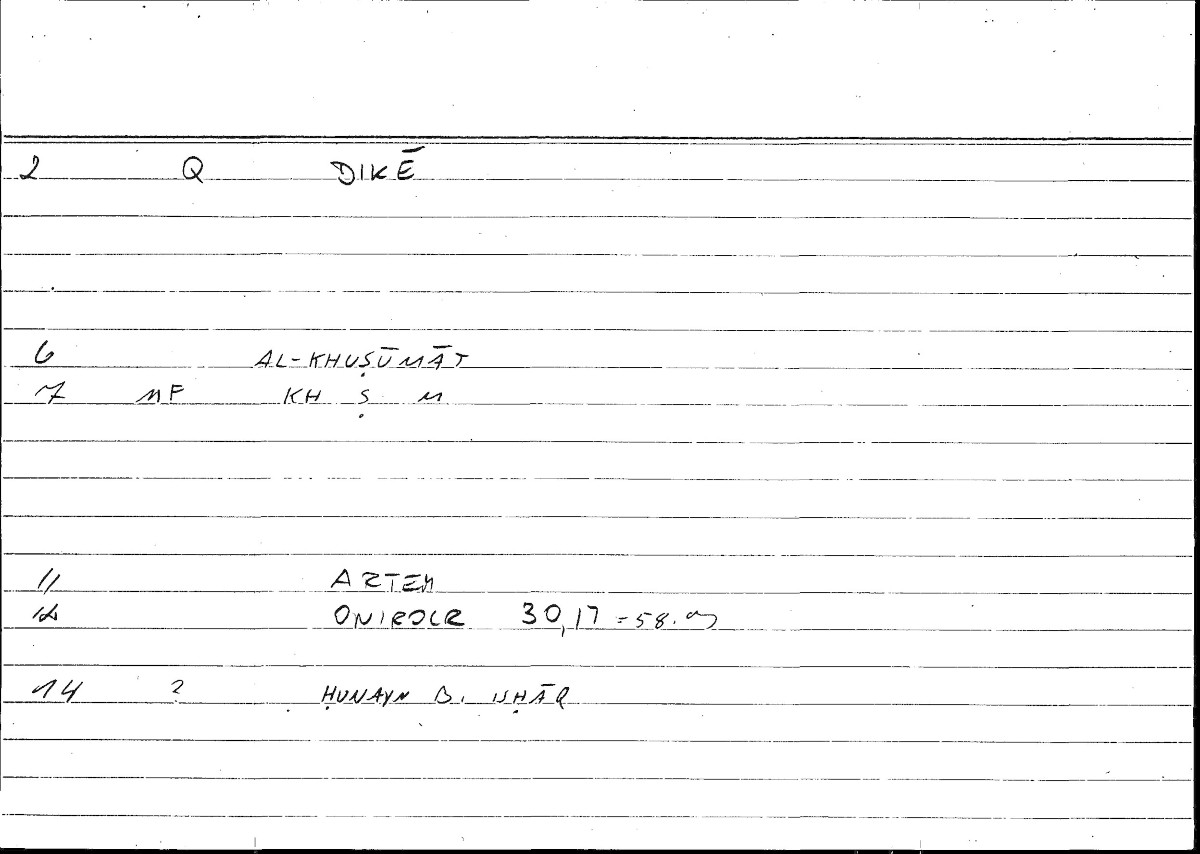 2 Q DIKĒ
6 AL-KHUṢŪMĀT
7 MF KH Ṣ M
11 ARTEM
12 ONIROCR 30,17 = 58.
14 2 ḤUNAYN B. ISḤĀQ